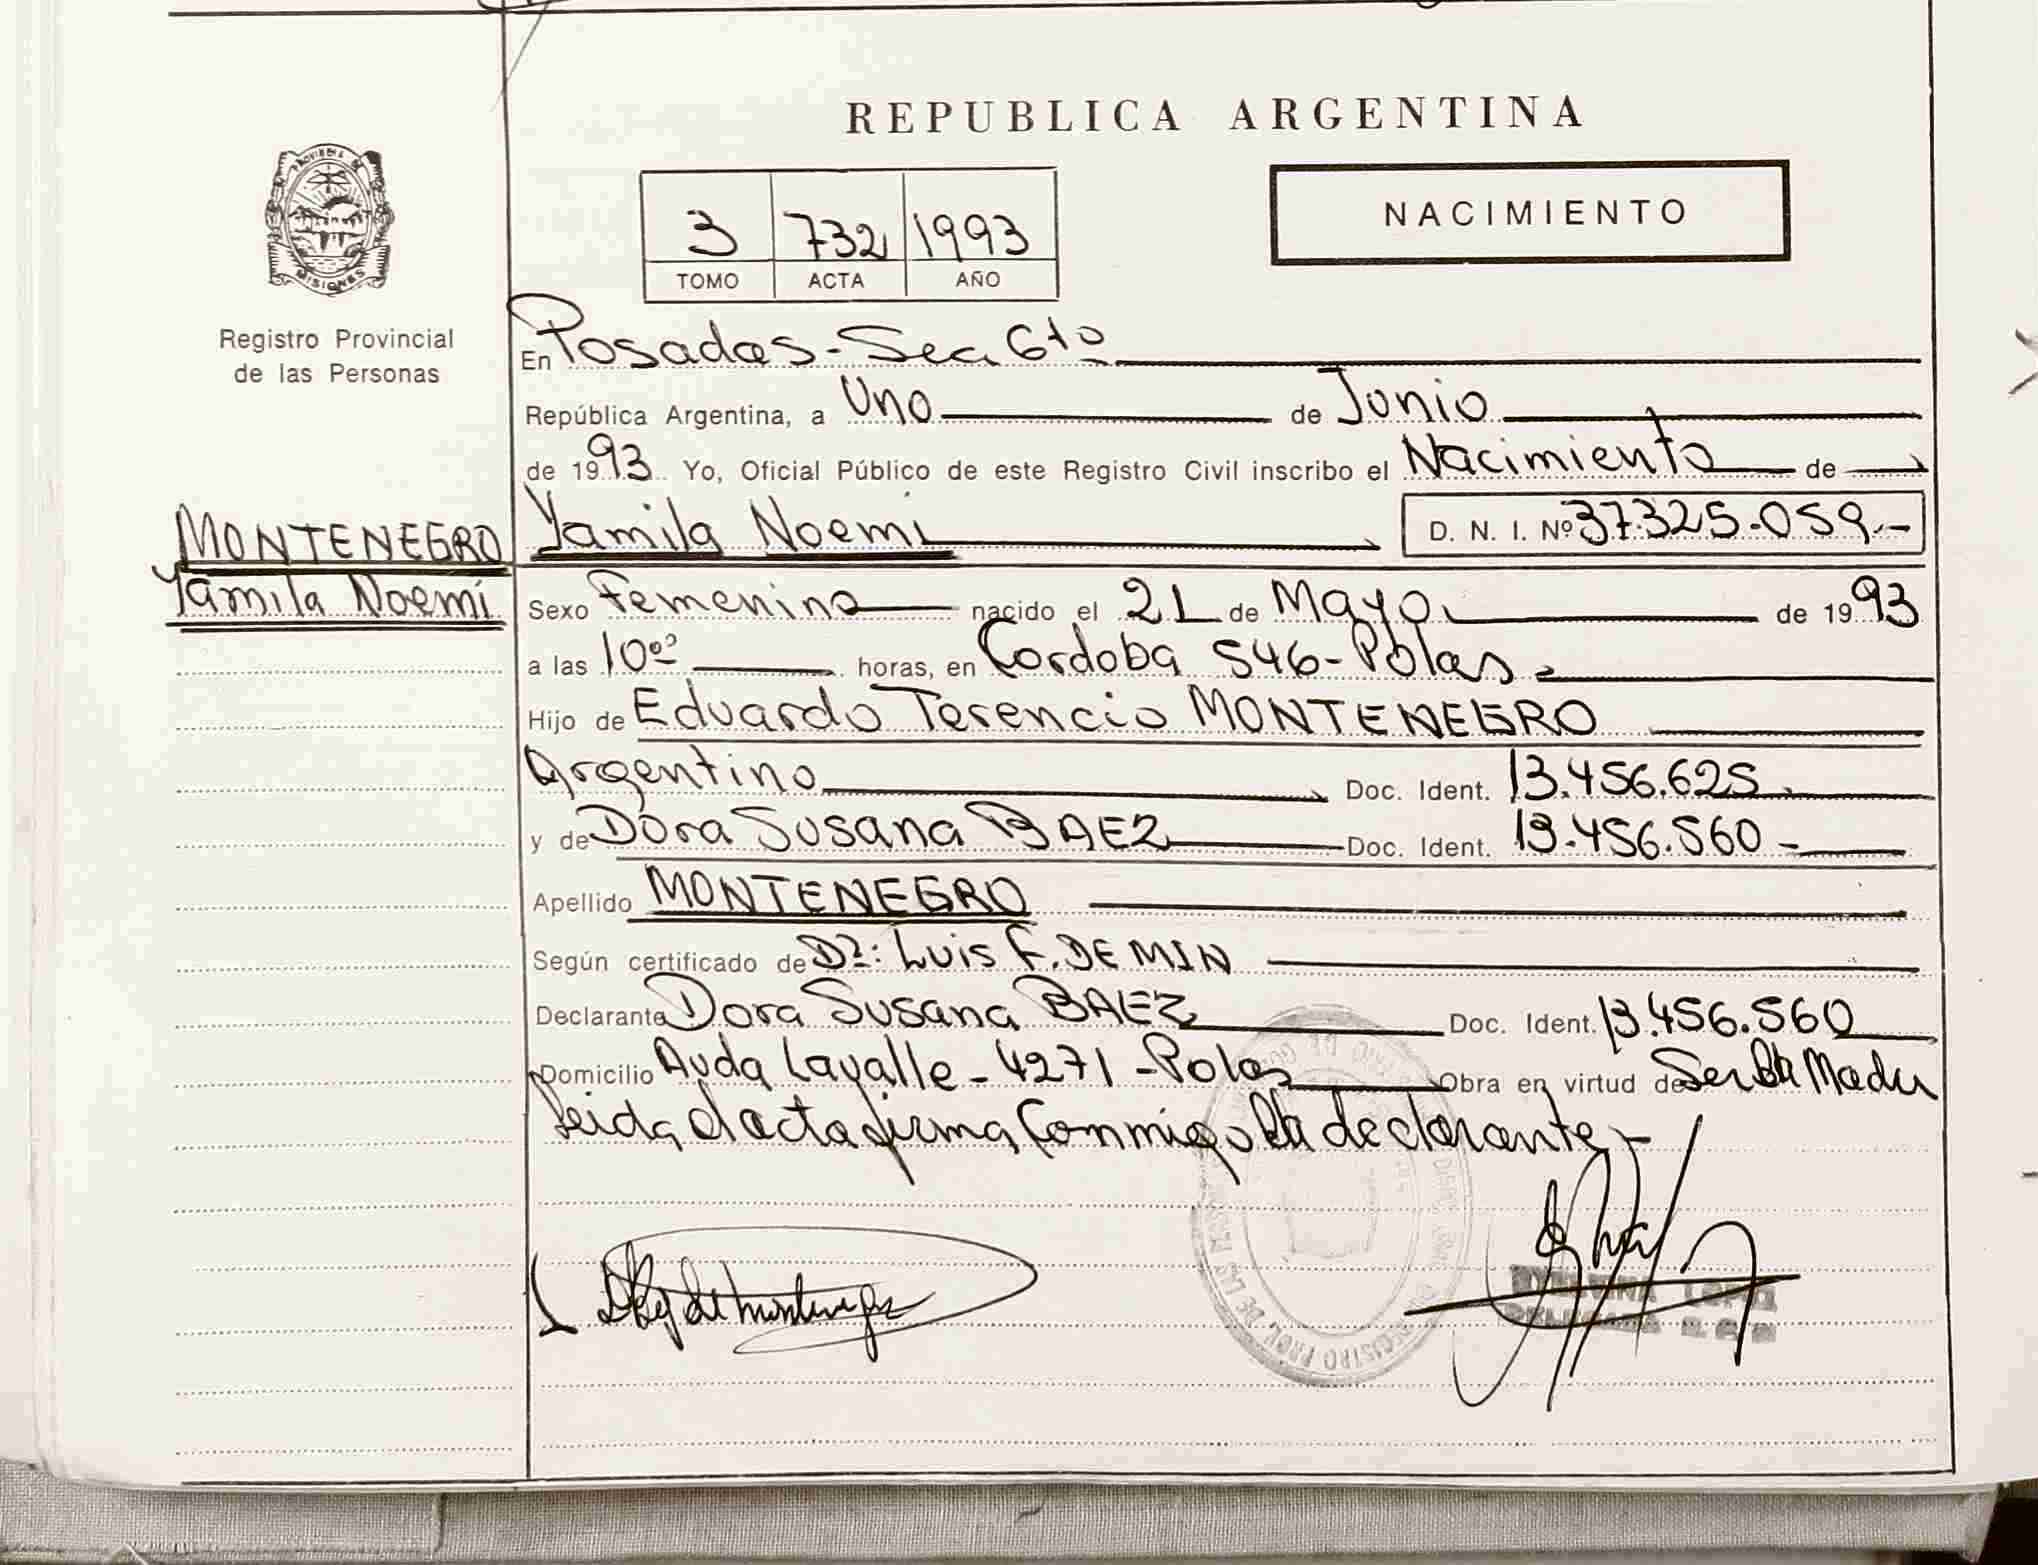 REPUBLICA ARGENTINA
PROVINCIA DE
MISIONES
Registro Provincial
de las Personas
3 732 1993
TOMO ACTA AÑO
NACIMIENTO
En Posadas - Secc 6to
República Argentina, a Uno de Junio
de 1993 Yo, Oficial Público de este Registro Civil inscribo el Nacimiento de
MONTENEGRO
Yamila Noemi
Yamila Noemi D. N. I. Nº 37.325.059.-
Sexo Femenino nacido el 21 de Mayo de 1993
a las 10⁰⁰ horas, en Cordoba 546 - Pdas
Hijo de Eduardo Terencio MONTENEGRO
Argentino Doc. Ident. 13.456.625
y de Dora Susana BAEZ Doc. Ident. 13.456.560 -
Apellido MONTENEGRO
Según certificado de Dr: Luis F. DE MIN
Declarante Dora Susana BAEZ Doc. Ident. 13.456.560
Domicilio Avda Lavalle - 4271 - Pdas Obra en virtud de Ser la Madre
Leida el acta firma Conmigo la declarante -
REGISTRO PROV. DE LAS
LOPEZ
DELEGADA R. C.